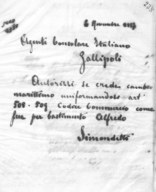 Agente Consolare Italiano
Gallipoli
Autorizzi se crede cambio
marittimo uniformandosi art
Codice Commercio come
per bastimento Alfredo
Simondetti